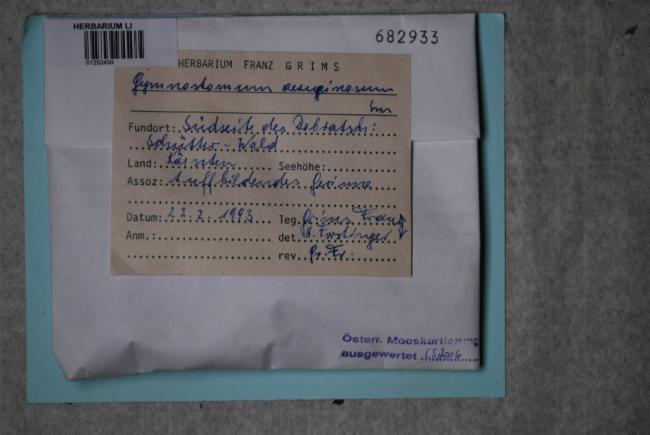 HERBARIUM LI
01252439
682933
HERBARIUM FRANZ GRIMS
Gymnostomum aeruginosum
Sm
Fundort: Südseite des Dobratsch:
Schütter-Wald
Land: Kärnten Seehöhe:
Assoz: Tuffbildendes Gerinne
Datum: 27.2.1993 leg. Grims Franz
Anm.: det. H. Forstinger
rev. Gr. Fr.
Österr. Mooskartierung
ausgewertet 2006